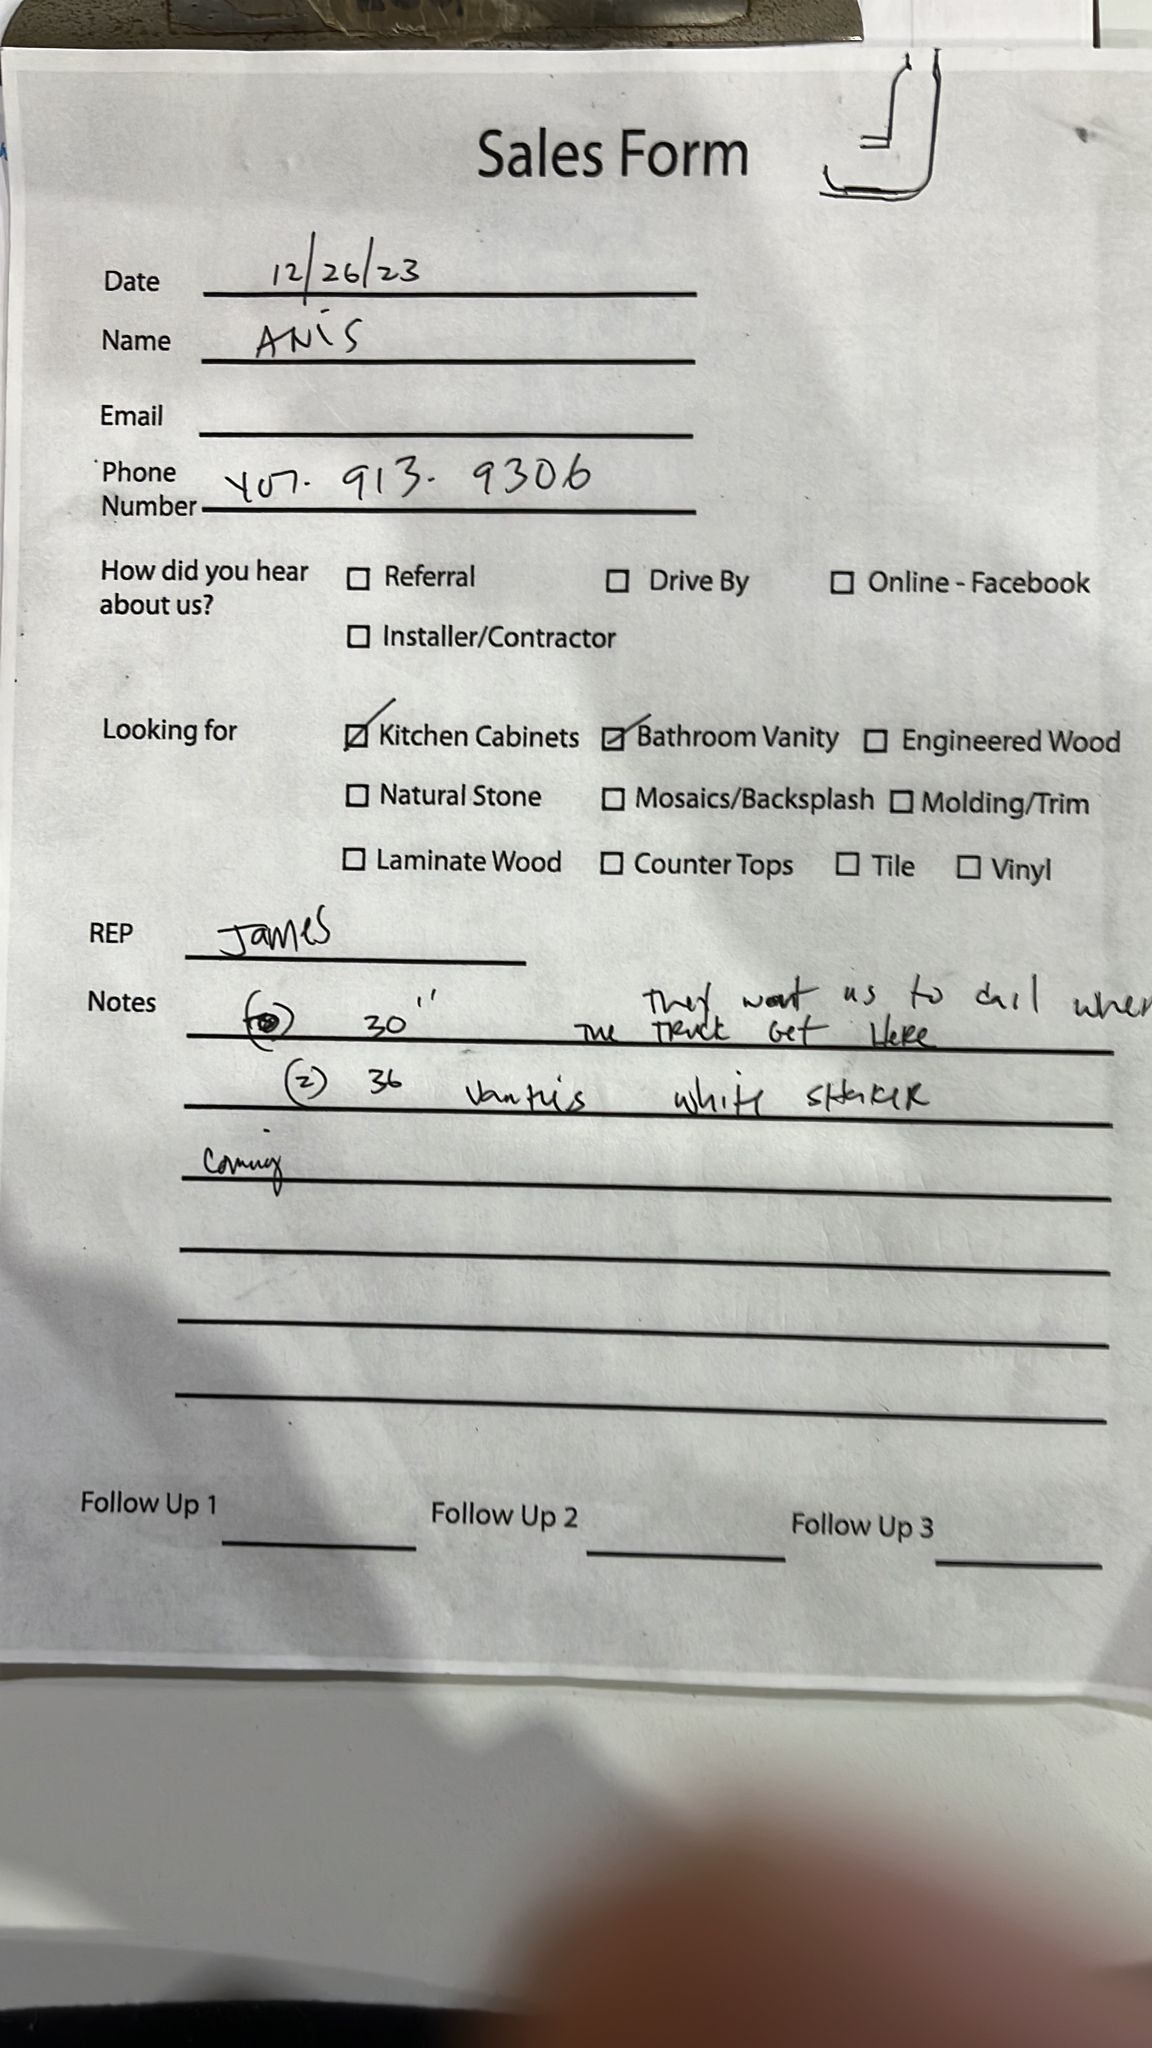 Sales Form
Date 12/26/23
Name ANIS
Email
Phone
Number 407. 913. 9306
How did you hear about us? Referral Drive By Online - Facebook
Installer/Contractor
Looking for Kitchen Cabinets Bathroom Vanity Engineered Wood
Natural Stone Mosaics/Backsplash Molding/Trim
Laminate Wood Counter Tops Tile Vinyl
REP James
They want us to call when
Notes 30" THE TRUCK GET HERE
(2) 36 white SHAKER
Coming
Follow Up 1 Follow Up 2 Follow Up 3